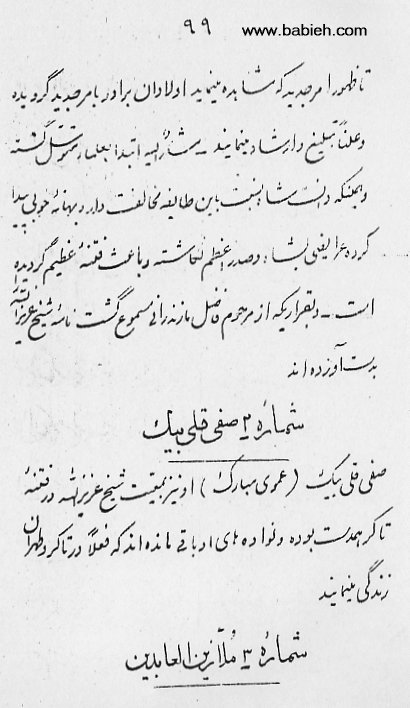 ۹۹ www.babieh.com
تا ظهور امر جدید که مشاهده مینماید اولادان برادر بامر جدید گرویده
و علناً تبلیغ و ارشاد مینمایند - مشارٌالیه ابتدا بعلماء متوسل گشته
و همینکه دانست شاه نسبت باین طایفه مخالفت دارد بهانهٔ خوبی پیدا
کرده عرایضی بشاه و صدر اعظم نگاشته و باعث فتنهٔ عظیم گردیده
است - و بقراریکه از مرحوم فاضل مازندرانی مسموع گشت نامهٔ شیخ عزیزالله
بدست آورده اند
شمارهٔ ۲ صفی قلی بیک
صفی قلی بیک (عموی مبارک) او نیز بمعیت شیخ عزیزالله در فتنهٔ
تاکر همدست بوده و نواده های او باقی مانده اند که فعلاً در تاکر و طهران
زندگی مینمایند
شمارهٔ ۳ ملّا زین العابدین